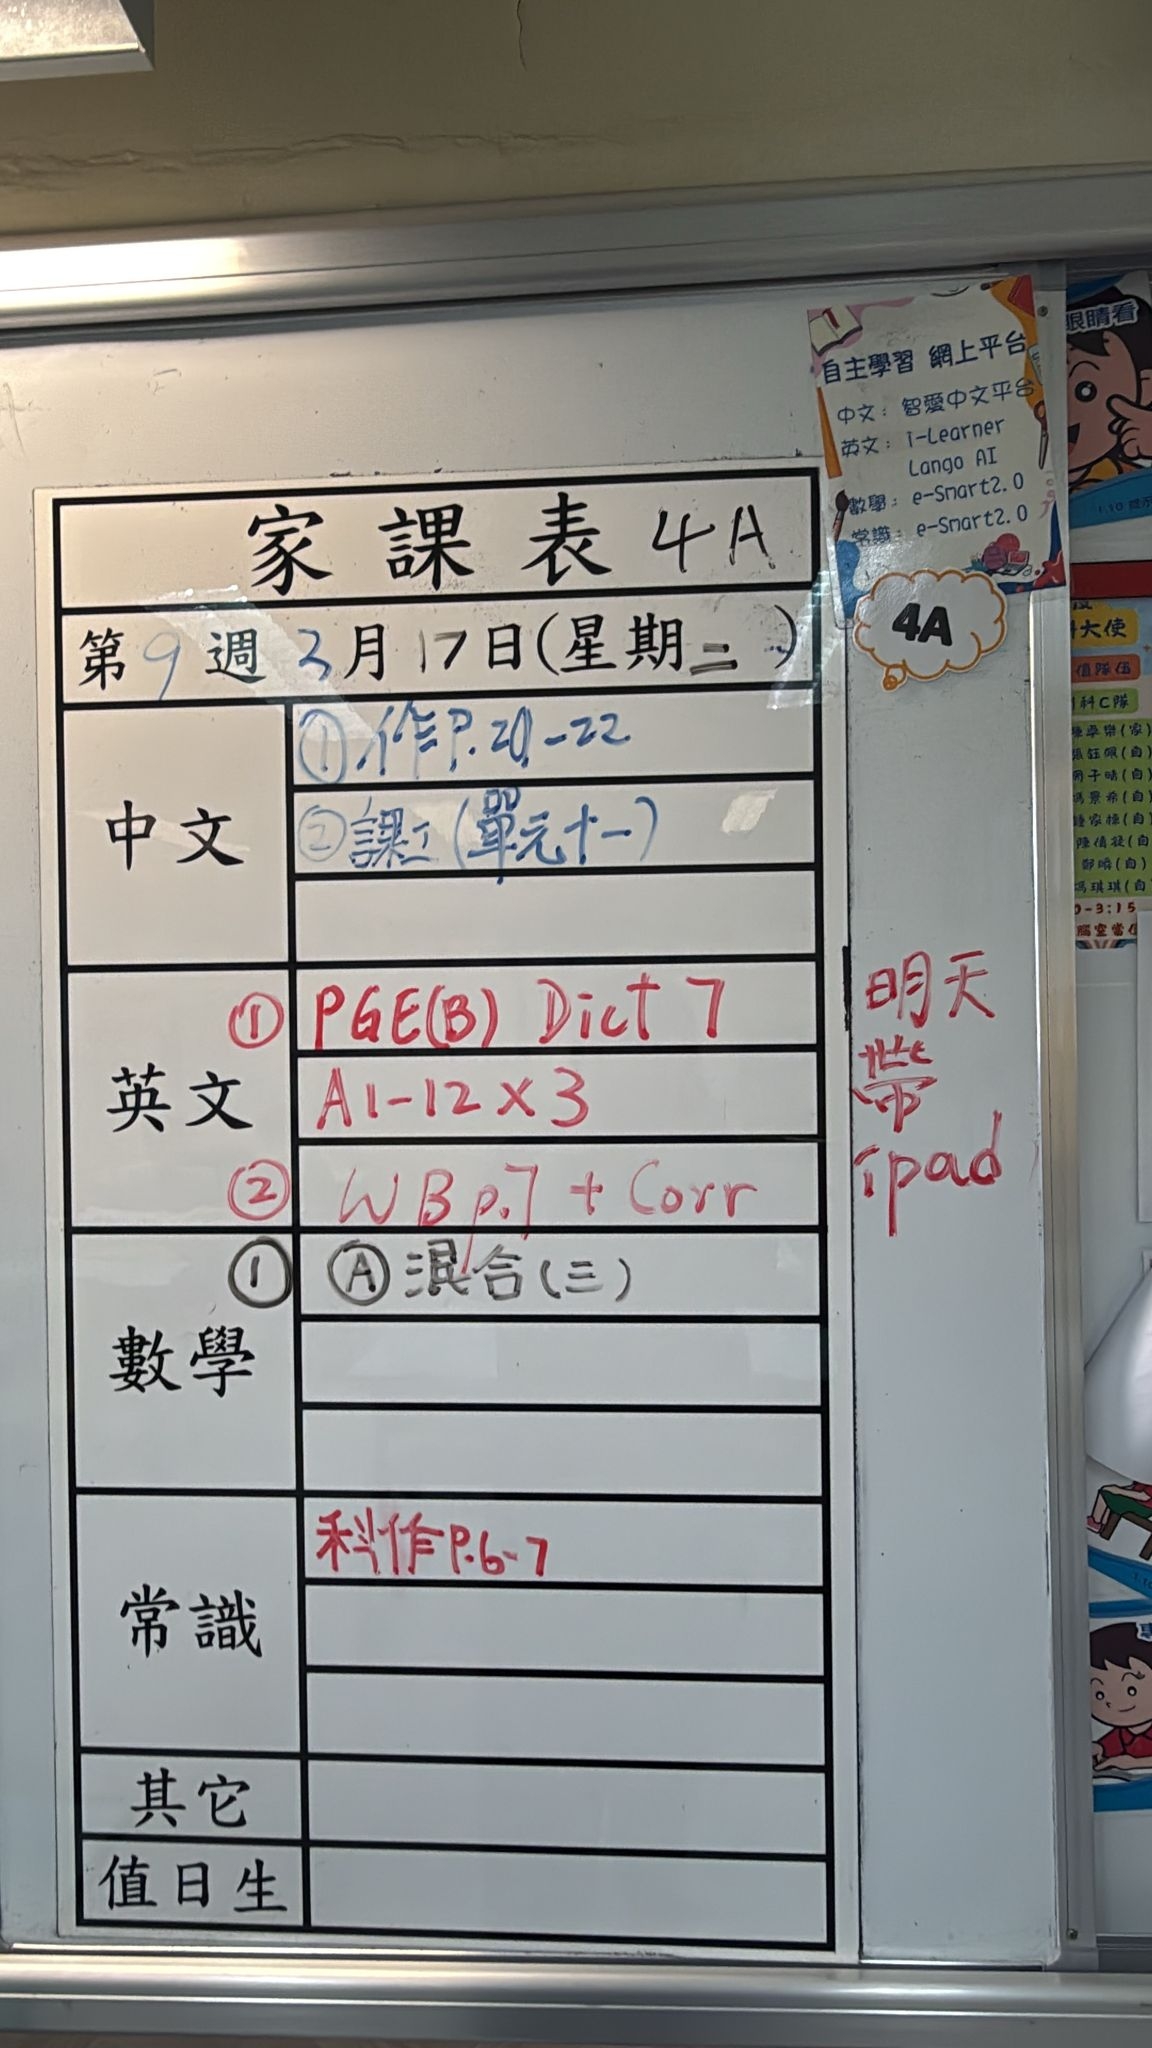 眼睛看
自主學習 網上平台
中文：智愛中文平台
英文：i-Learner
Lango AI
數學：e-Smart2.0
常識：e-Smart2.0
4A
家課表 4A
第9週 3月17日(星期二)
中文
①作P.20-22
②課工(單元十一)
英文
① PGE(B) Dict 7
A1-12×3
② WB p.7 + Corr
數學
① Ⓐ混合(三)
常識
科作P.6-7
其它
值日生
明天
帶
ipad
大使
值隊伍
科C隊
0-3:15